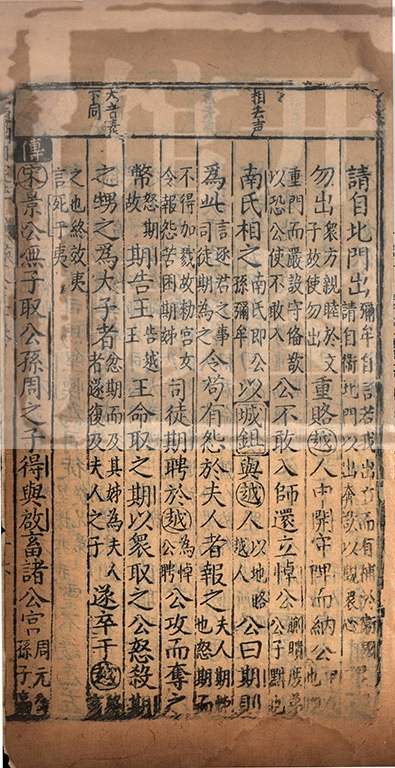 相去声
大音泰
下同
請自北門出 彌牟自言若我出亡而有補於宗國
請自衛北門以出奔欲以觀衆心
勿出 衆方親睦於文
子故使勿出 重賂越人申開守陴而納公
重門而嚴設守備欲
以恐公使不敢入 公不敢入師還立悼公 蒯聵庶弟
公子黚也
南氏相之 南氏即公
孫彌牟 以城鉏與越人 以地賂
越人 公曰期則
爲此 言逐君之事
司徒期為之 令苟有怨於夫人者報之 夫人期姊
也怒期而
不得加戮故勑宮女
令報怨苦困期姊 司徒期聘於越 為悼
公聘 公攻而奪之
幣 怒期
故 期告王 告越
王 王命取之期以衆取之公怒殺
之甥之爲大子者 忿期而及其姊為夫人
者遂復及夫人之子 遂卒于越
之也終效夷
言死于夷
傳 宋景公無子取公孫周之子得與啟畜諸公宮 周元公
孫子高